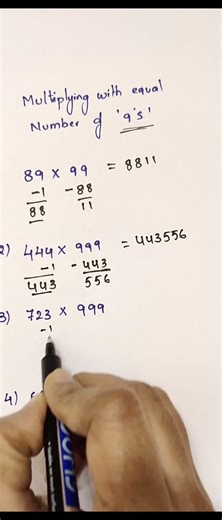 Multiplying with equal
Number of '9's'
89 × 99 = 8811
-1 -88
88 11
2) 444 × 999 = 443556
-1 -443
443 556
3) 723 × 999
-1
4)